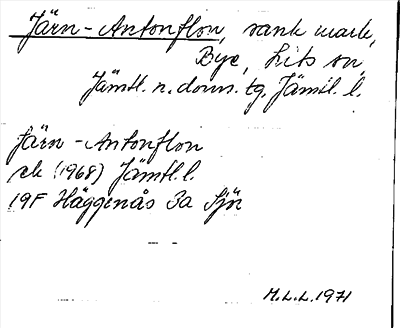 Järn-Antonflon, sank mark,
Bye, Lits sn,
Jämtl. n. doms. tg, Jämtl. l.
Järn-Antonflon
ek (1968) Jämtl.l.
19F Häggenås 3a Sjör
M.L.L. 1971